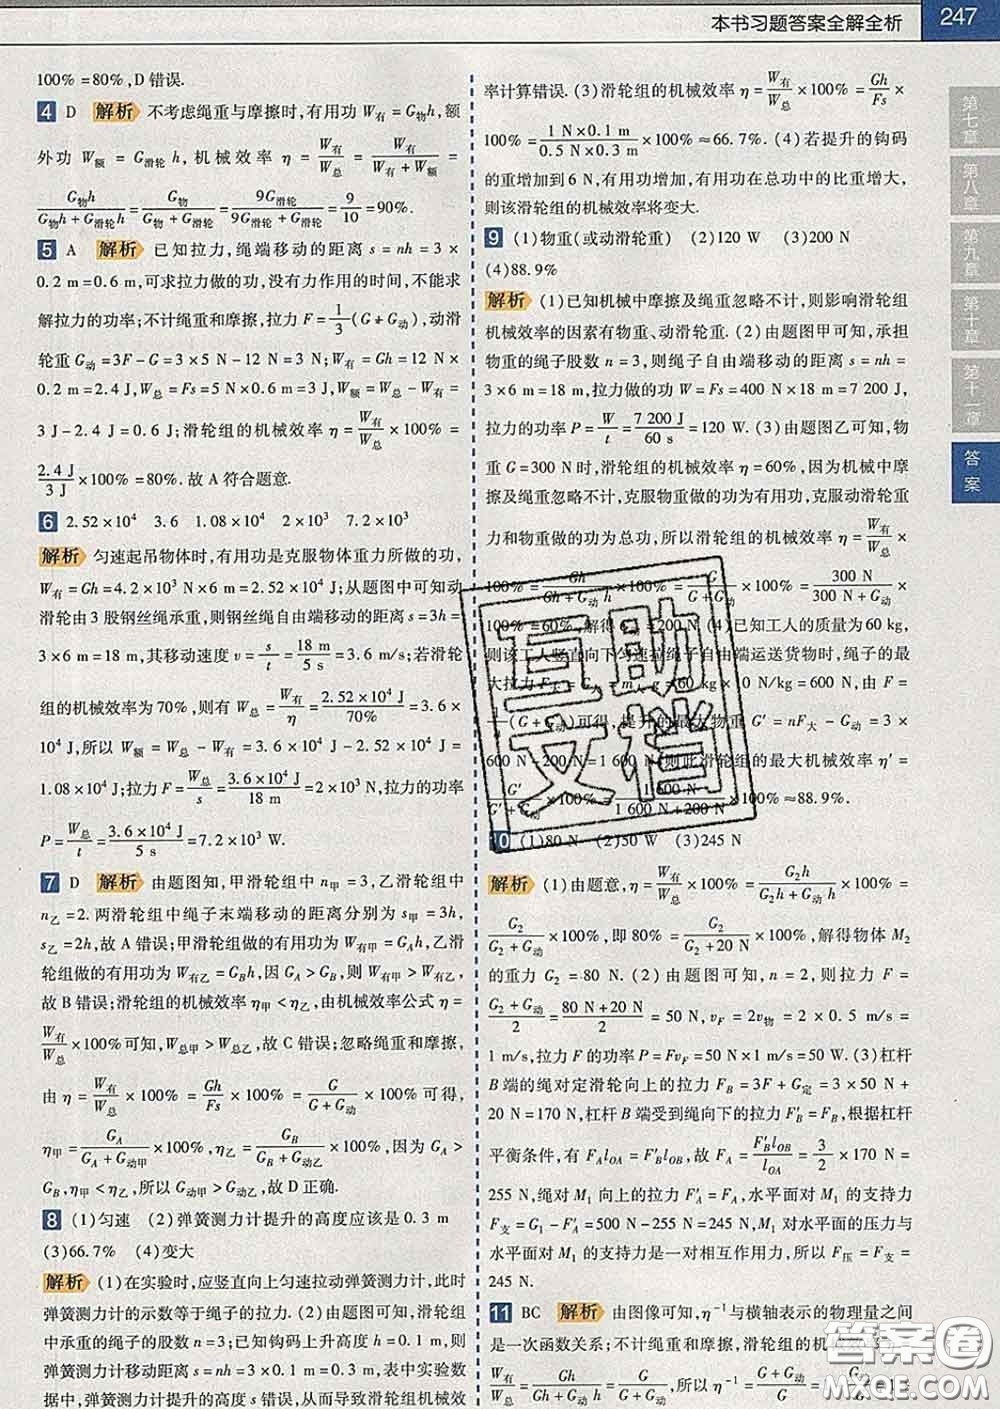 本书习题答案全解全析
247
100% = 80%, D 错误.
4 D 解析 不考虑绳重与摩擦时,有用功 W有 = G物h, 额
外功 W额 = G滑轮 h, 机械效率 η = W有/W总 = W有/(W有 + W额) =
G物h/(G物h + G滑轮h) = G物/(G物 + G滑轮) = 9G滑轮/(9G滑轮 + G滑轮) = 9/10 = 90%.
5 A 解析 已知拉力,绳端移动的距离 s = nh = 3 ×
0.2 m = 0.6 m, 可求拉力做的功,没有力作用的时间,不能求
解拉力的功率;不计绳重和摩擦,拉力 F = 1/3(G + G动), 动滑
轮重 G动 = 3F - G = 3 × 5 N - 12 N = 3 N; W有 = Gh = 12 N ×
0.2 m = 2.4 J, W总 = Fs = 5 N × 0.6 m = 3 J, W额 = W总 - W有 =
3 J - 2.4 J = 0.6 J; 滑轮组的机械效率 η = W有/W总 × 100% =
2.4 J/3 J × 100% = 80%. 故 A 符合题意.
6 2.52×10⁴ 3.6 1.08×10⁴ 2×10³ 7.2×10³
解析 匀速起吊物体时,有用功是克服物体重力所做的功,
W有 = Gh = 4.2×10³ N×6 m = 2.52×10⁴ J; 从题图中可知动
滑轮由 3 股钢丝绳承重,则钢丝绳自由端移动的距离 s = 3h =
3×6 m = 18 m, 其移动速度 v = s/t = 18 m/5 s = 3.6 m/s; 若滑轮
组的机械效率为 70%, 则有 W总 = W有/η = 2.52×10⁴ J/70% = 3.6×
10⁴ J, 所以 W额 = W总 - W有 = 3.6×10⁴ J - 2.52×10⁴ J =
1.08×10⁴ J; 拉力 F = W总/s = 3.6×10⁴ J/18 m = 2×10³ N, 拉力的功率
P = W总/t = 3.6×10⁴ J/5 s = 7.2×10³ W.
7 D 解析 由题图知,甲滑轮组中 n甲 = 3, 乙滑轮组中
n乙 = 2. 两滑轮组中绳子末端移动的距离分别为 s甲 = 3h,
s乙 = 2h, 故 A 错误;甲滑轮组做的有用功为 W有甲 = GAh, 乙滑
轮组做的有用功为 W有乙 = GBh, 因 GA > GB, 则 W有甲 > W有乙,
故 B 错误;滑轮组的机械效率 η甲 < η乙, 由机械效率公式 η =
W有/W总 × 100% 可知, W总甲 > W总乙, 故 C 错误;忽略绳重和摩擦,
由 η = W有/W总 × 100% = Gh/Fs × 100% = G/(G + G动) × 100% 可得,
η甲 = GA/(GA + G动甲) × 100%, η乙 = GB/(GB + G动乙) × 100%, 因为 GA >
GB, η甲 < η乙, 所以 G动甲 > G动乙, 故 D 正确.
8 (1)匀速 (2)弹簧测力计提升的高度应该是 0.3 m
(3)66.7% (4)变大
解析 (1)在实验时,应竖直向上匀速拉动弹簧测力计,此时
弹簧测力计的示数等于绳子的拉力. (2)由题图可知,滑轮组
中承重的绳子的股数 n = 3; 已知钩码上升高度 h = 0.1 m, 则
弹簧测力计移动距离 s = nh = 3×0.1 m = 0.3 m, 表中实验数
据中,弹簧测力计提升的高度 s 错误,从而导致滑轮组机械效
率计算错误. (3)滑轮组的机械效率 η = W有/W总 × 100% = Gh/Fs ×
100% = (1 N×0.1 m)/(0.5 N×0.3 m) × 100% ≈ 66.7%. (4)若提升的钩码
的重增加到 6 N, 有用功增加,有用功在总功中的比重增大,
则该滑轮组的机械效率将变大.
9 (1)物重(或动滑轮重) (2)120 W (3)200 N
(4)88.9%
解析 (1)已知机械中摩擦及绳重忽略不计,则影响滑轮组
机械效率的因素有物重、动滑轮重. (2)由题图甲可知,承担
物重的绳子股数 n = 3, 则绳子自由端移动的距离 s = nh =
3×6 m = 18 m, 拉力做的功 W = Fs = 400 N×18 m = 7 200 J,
拉力的功率 P = W/t = 7 200 J/60 s = 120 W. (3)由题图乙可知,物
重 G = 300 N 时,滑轮组的机械效率 η = 60%, 因为机械中摩
擦及绳重忽略不计,克服物重做的功为有用功,克服动滑轮重
力和物重做的功为总功,所以滑轮组的机械效率 η = W有/W总 ×
100% = Gh/(Gh + G动 h) × 100% = G/(G + G动) × 100% = 300 N/(300 N + G动) ×
100% = 60%, 解得 G动 = 200 N. (4)已知工人的质量为 60 kg,
则该工人竖直向下匀速拉绳子自由端运送货物时,绳子的最
大拉力 F大 = G人 = m人 g = 60 kg×10 N/kg = 600 N, 由 F =
1/3(G + G动)可得,提升的最大物重 G′ = nF大 - G动 = 3 ×
600 N - 200 N = 1 600 N, 则此滑轮组的最大机械效率 η′ =
G′/(G′ + G动) × 100% = 1 600 N/(1 600 N + 200 N) × 100% ≈ 88.9%.
10 (1)80 N (2)50 W (3)245 N
解析 (1)由题意, η = W有/W总 × 100% = G₂h/(G₂h + G动h) × 100% =
G₂/(G₂ + G动) × 100%, 即 80% = G₂/(G₂ + 20 N) × 100%, 解得物体 M₂
的重力 G₂ = 80 N. (2)由题图可知, n = 2, 则拉力 F =
(G₂ + G动)/2 = (80 N + 20 N)/2 = 50 N, vF = 2v物 = 2 × 0.5 m/s =
1 m/s, 拉力 F 的功率 P = FvF = 50 N×1 m/s = 50 W. (3)杠杆
B 端的绳对定滑轮向上的拉力 FB = 3F + G定 = 3×50 N +
20 N = 170 N, 杠杆 B 端受到绳向下的拉力 F′B = FB, 根据杠杆
平衡条件,有 FAlOA = F′BlOB, 故 FA = F′BlOB/lOA = 3/2 × 170 N =
255 N, 绳对 M₁ 向上的拉力 F′A = FA, 水平面对 M₁ 的支持力
F支 = G₁ - F′A = 500 N - 255 N = 245 N, M₁ 对水平面的压力与
水平面对 M₁ 的支持力是一对相互作用力,所以 F压 = F支 =
245 N.
11 BC 解析 由图像可知, η⁻¹ 与横轴表示的物理量之间
是一次函数关系;不计绳重和摩擦,滑轮组的机械效率 η =
W有/W总 = Gh/(Gh + G动 h) = G/(G + G动), 所以 η⁻¹ = (G + G动)/G =
第七章
第八章
第九章
第十章
第十一章
答案
互助
文档
答案圈
MXQE.COM